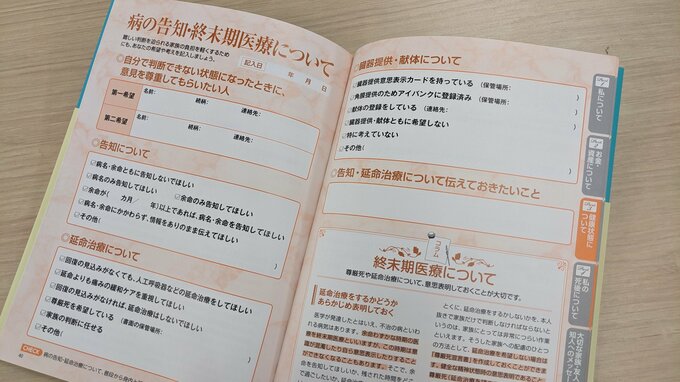 病の告知・終末期医療について
難しい判断を迫られる家族の負担を軽くするため
にも、あなたの希望や考えを記入しましょう。
記入日 年 月 日
◎自分で判断できない状態になったときに、
意見を尊重してもらいたい人
第一希望 名前: 続柄: 連絡先:
第二希望 名前: 続柄: 連絡先:
◎告知について
病名・余命ともに告知しないでほしい
病名のみ告知してほしい 余命のみ告知してほしい
余命が( カ月/ 年)以上であれば、病名・余命を告知してほしい
病名・余命にかかわらず、情報をありのまま伝えてほしい
その他( )
◎延命治療について
回復の見込みがなくても、人工呼吸器などの延命治療をしてほしい
延命よりも痛みの緩和ケアを重視してほしい
回復の見込みがなければ、延命治療はしないでほしい
尊厳死を希望している (書面の保管場所: )
家族の判断に任せる
その他( )
40
CHECK
病の告知・延命治療について、普段から身の
◎臓器提供・献体について
臓器提供意思表示カードを持っている (保管場所: )
角膜提供のためアイバンクに登録済み (保管場所: )
献体の登録をしている (連絡先: )
臓器提供・献体ともに希望しない
特に考えていない
その他( )
◎告知・延命治療について伝えておきたいこと
コラム
終末期医療について
尊厳死や延命治療について、意思表明しておくことが大切です。
延命治療をするかどうか
あらかじめ表明しておく
医学が発達したとはいえ、不治の病とい
われる病気はあります。余命わずかな時期の医
療を終末期医療といいますが、この時期は意
識が混濁したり自ら意思表示したりすること
ができなくなることもあります。そこで、余
命を告知してほしいか、残された時間をどこ
で過ごしたいか、延命
とくに、延命治療をするかしないかを、本人
抜きで家族だけで判断しなければならないと
いうのは、家族にとっては非常につらい作業
といえます。そうした家族への配慮のひとつ
の方法として、延命治療を希望しない場合は
「尊厳死宣言書」を作成しておくことができま
す。健全な精神状態時の意思表明であるこ
私について
お金・資産について
健康状態について
私の死後について
大切な家族・友人・知人へのメッセ